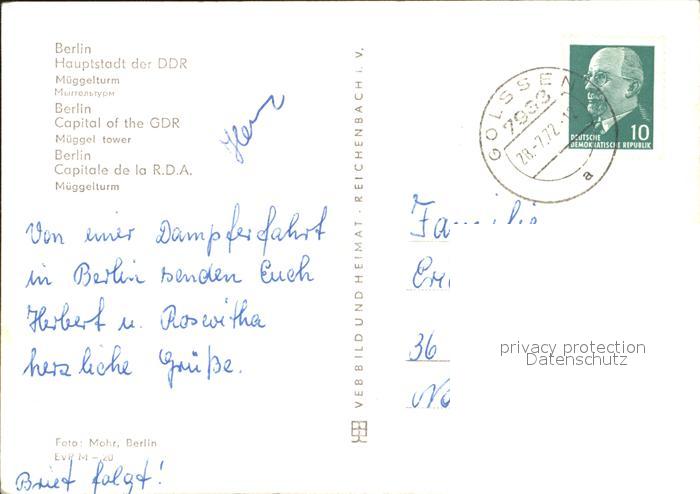 Berlin
Hauptstadt der DDR
Müggelturm
Мюггельтурм
Berlin
Capital of the GDR
Müggel tower
Berlin
Capitale de la R.D.A.
Müggelturm
Von einer Dampferfahrt
in Berlin senden Euch
Herbert u. Roswitha
herzliche Grüße.
Foto: Mohr, Berlin
EVP M –,20
Brief folgt!
VEB BILD UND HEIMAT · REICHENBACH I. V.
GOLSSEN
7933
28.-7.72.-12
a
10
DEUTSCHE
DEMOKRATISCHE REPUBLIK
Familie
36
privacy protection
Datenschutz